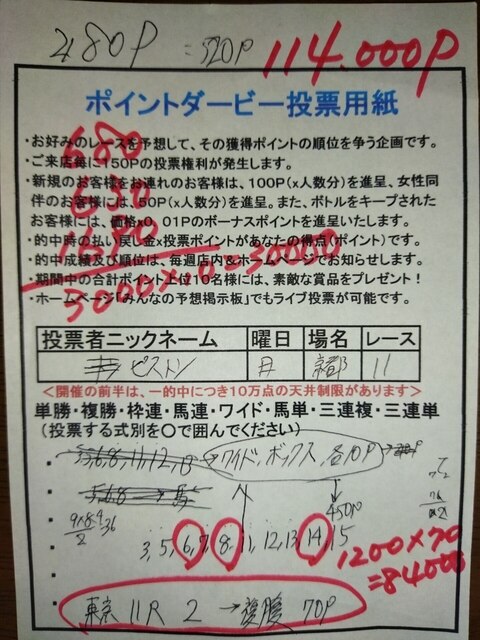 480P =520P 114.000P
ポイントダービー投票用紙
・お好みのレースを予想して、その獲得ポイントの順位を争う企画です。
・ご来店毎に150Pの投票権利が発生します。
・新規のお客様をお連れのお客様は、100P(x人数分)を進呈、女性同
伴のお客様には、50P(x人数分)を進呈。また、ボトルをキープされた
お客様には、価格x0, 01Pのボーナスポイントを進呈いたします。
・的中時の払い戻し金x投票ポイントがあなたの得点(ポイント)です。
・的中成績及び順位は、毎週店内&ホームページでお知らせします。
・期間中の合計ポイント上位10名様には、素敵な賞品をプレゼント!
・ホームページ「みんなの予想掲示板」でもライブ投票が可能です。
投票者ニックネーム 曜日 場名 レース
ピストン 月 京都 11
<開催の前半は、一的中につき10万点の天井制限があります>
単勝・複勝・枠連・馬連・ワイド・馬単・三連複・三連単
(投票する式別を○で囲んでください)
5,6,8,11,12,13→ワイド,ボックス,各10P
5,6,8→馬
450P
3,5,6,7,8,11,12,13,14,15
1200×70
=84000
東京11R 2→複勝 70P